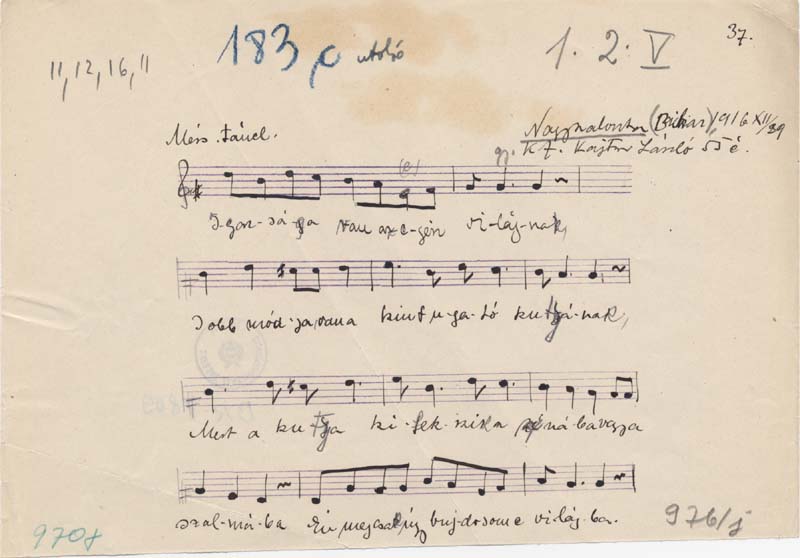 37.
11, 12, 16, 11
183 c utolsó
1. 2. V
Nagyszalonta (Bihar), 1916 XII/29
gy. K Z. Kajtor László 55 é.
Mérs. táncl.
(e)
I-gaz-sá-ga van az e-gész vi-lág-nak,
Jobb mód-ja, vana kint u-ga-tó ku-tyá-nak,
Mert a ku-tya ki-fek-szik a szé-ná-ba vagy a
szal-má-ba Én meg csak úgy buj-dosom e vi-lág-ba.
970j
976/j